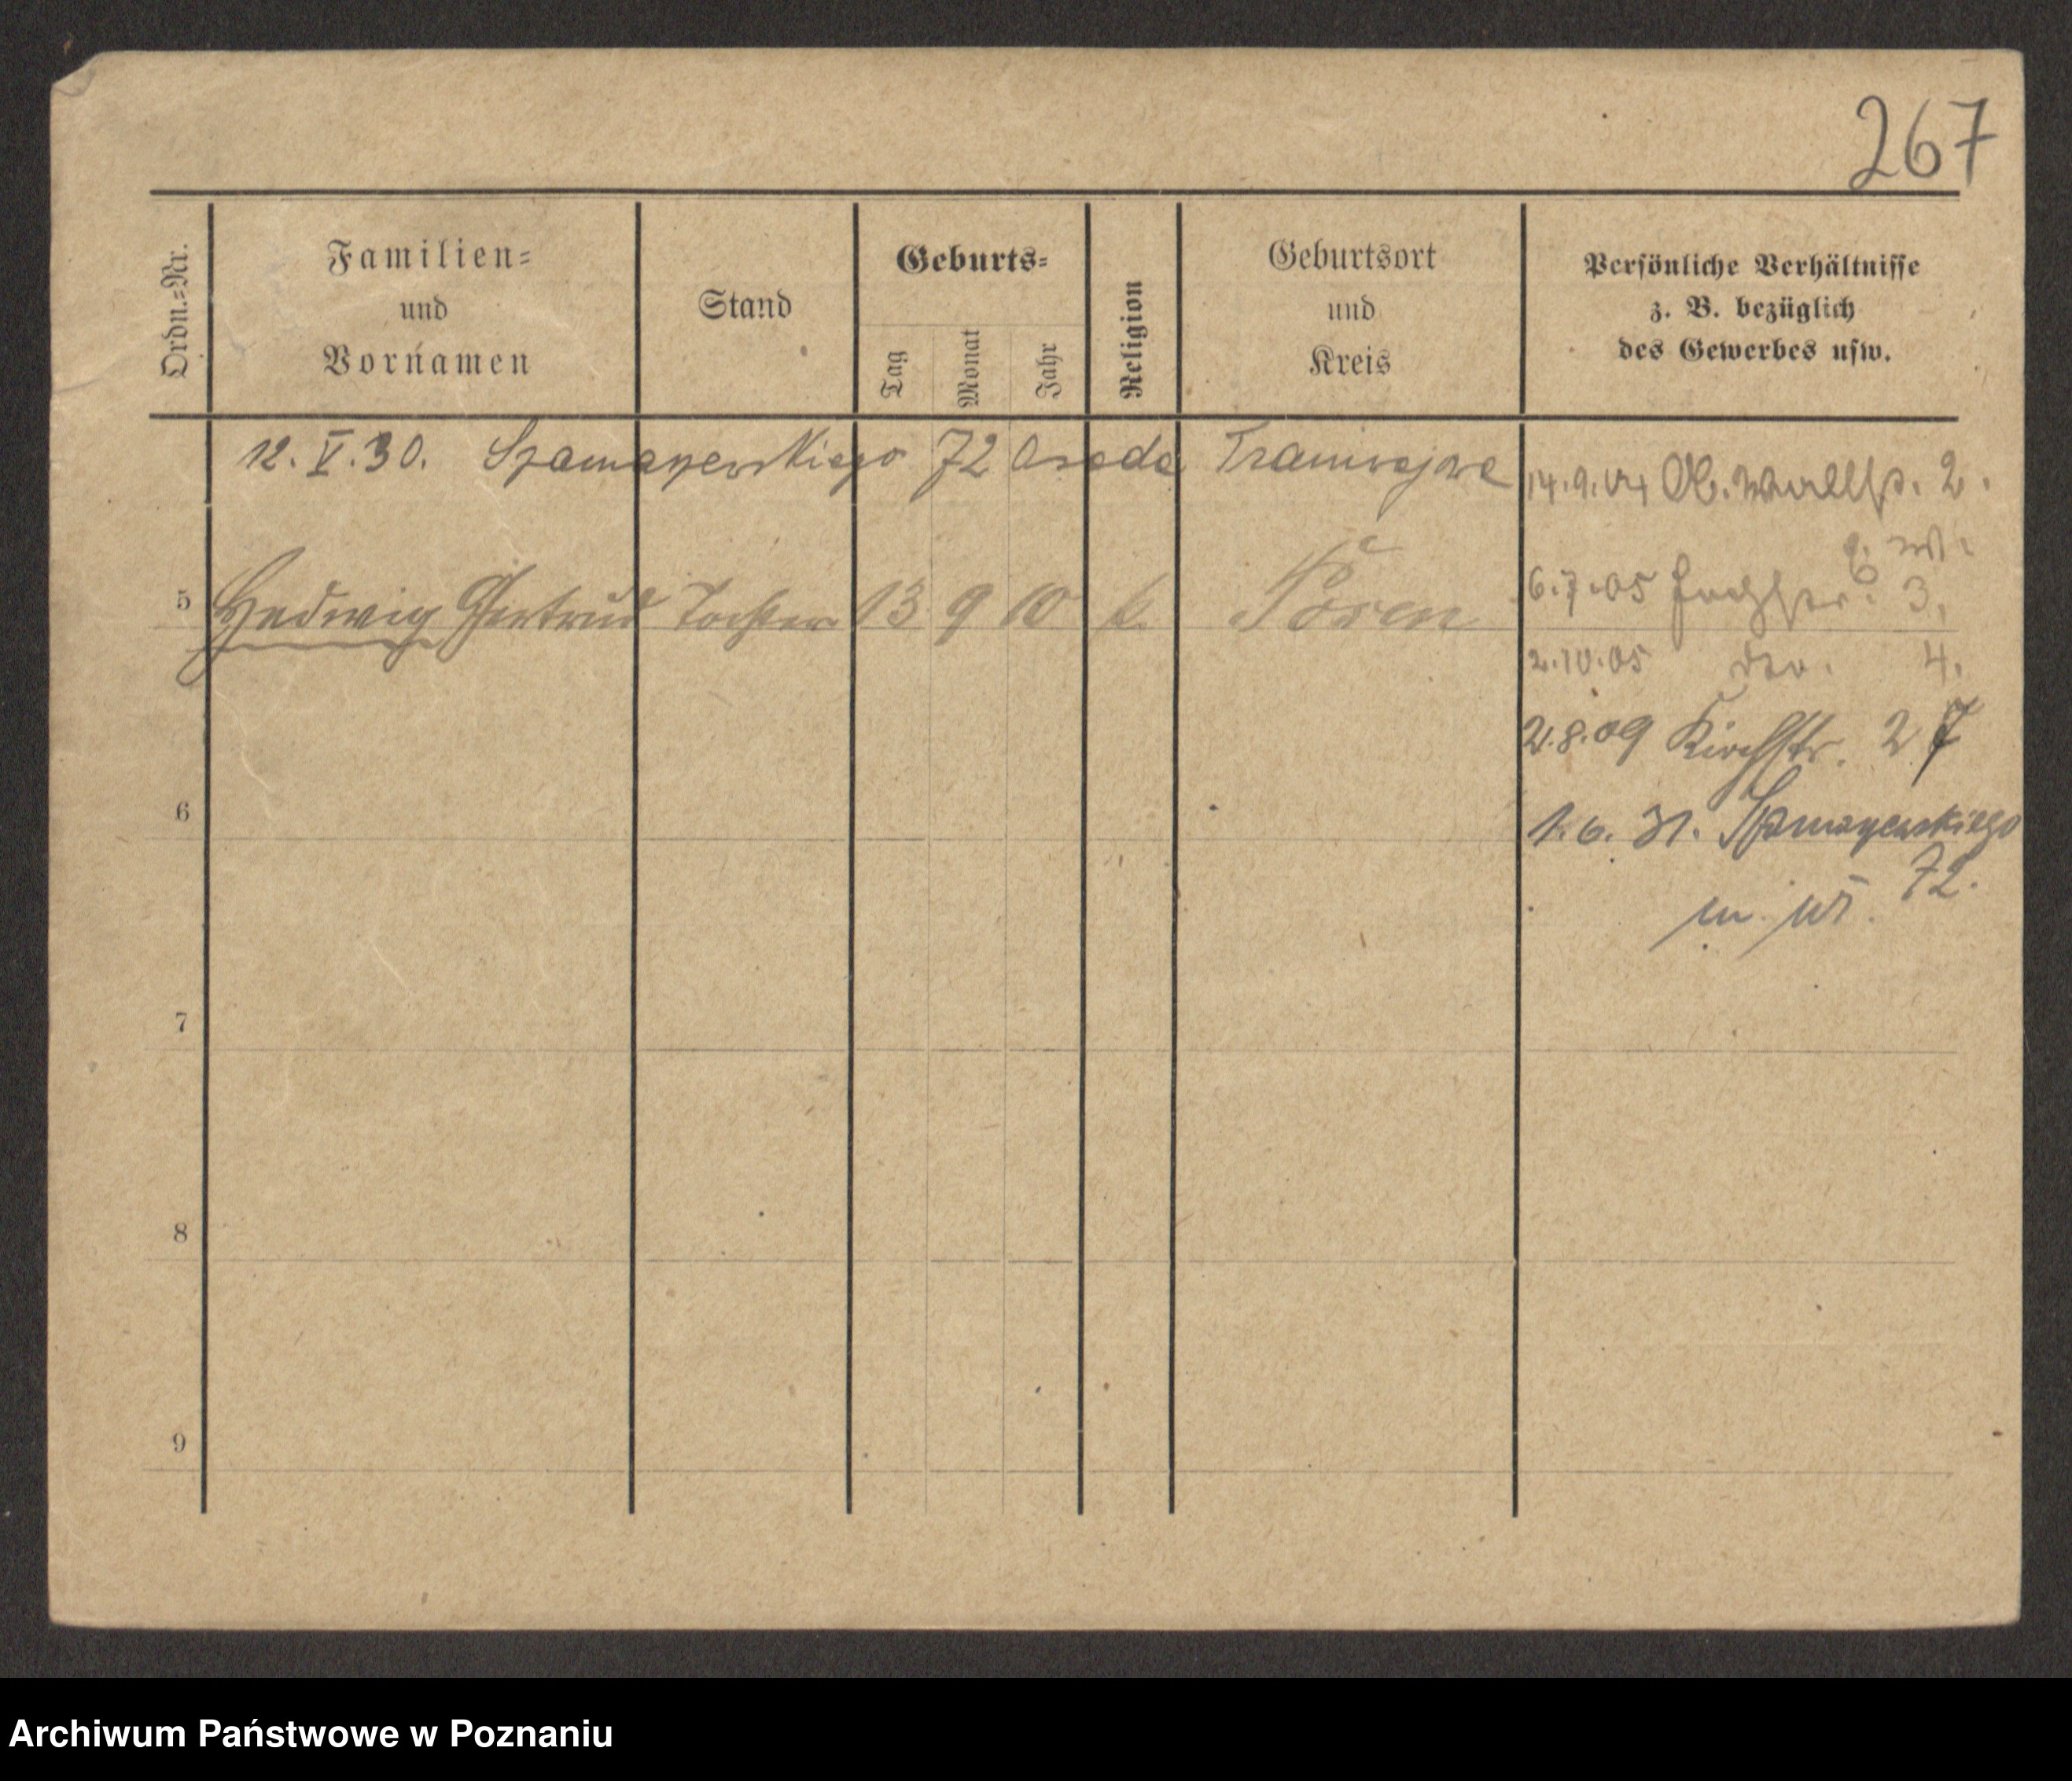 267
Ordn.=Nr.
Familien=
und
Vornamen
Stand
Geburts=
Tag
Monat
Jahr
Religion
Geburtsort
und
Kreis
Persönliche Verhältnisse
z. B. bezüglich
des Gewerbes usw.
12. V. 30. Szamarzewskiego 72 Osada Tramwajowa
14.9.04 Ob. Wallstr. 2.
5 Hedwig Gertrud Tochter 13 9 10 k. Posen
6.7.05 3.
2.10.05 dto. 4.
2.8.09 Kirchstr. 27
6
1.6.31. Szamarzewskiego
72.
m. w.
7
8
9
Archiwum Państwowe w Poznaniu